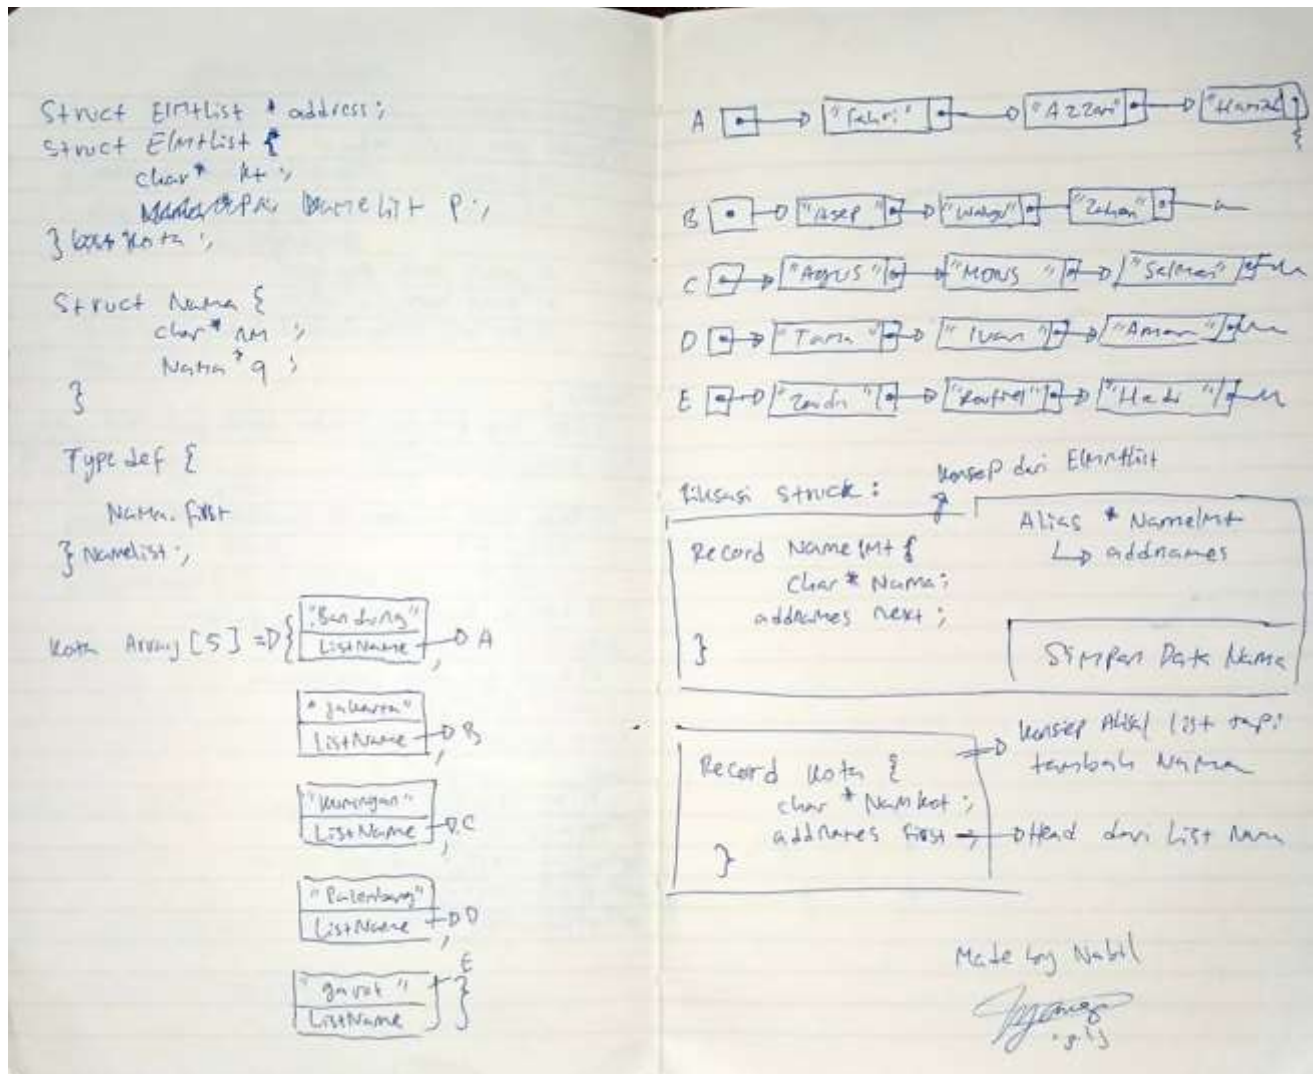 Struct ElmtList * address;
Struct ElmtList {
char* kt;
NameList p;
} Kota;
Struct Nama {
char* nm;
Nama* q;
}
Typedef {
Nama. first
} Namelist;
Kota Array [5] => {
"Bandung"
ListName → A
,
"Jakarta"
ListName → B
,
"Kuningan"
ListName → C
,
"Palembang"
ListName → D
,
"garut" E
ListName
}
A → "Fahri" → "Azzari" →
B → "Asep" → "Wahyu" →
C → "Agus" → "MONS" →
D → "Tama" → "Ivan" → "Aman"
E → → → "Hadi"
konsep dari ElmtList
struck:
Record NamelMt {
char* Nama;
addnames next;
}
Alias * NamelMt
↳ addnames
Simpan Data Nama
Record Kota {
char * Namkot;
addnames First ;
}
→ konsep list tapi
tambah Nama
→ Head dari List Nama
Made by Nabil